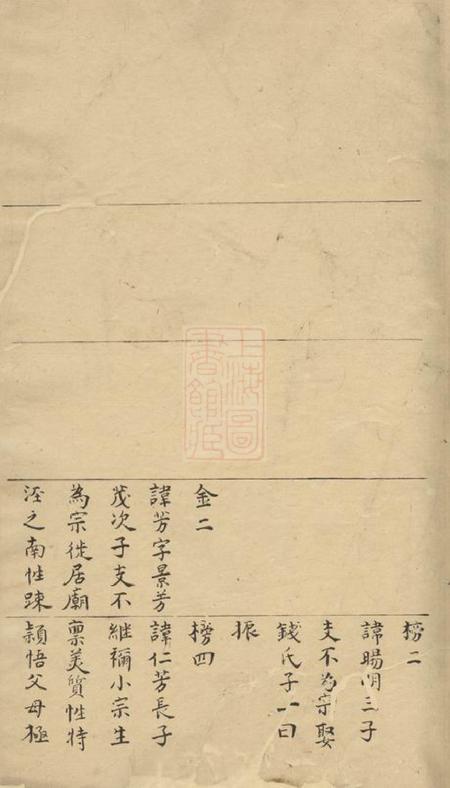 上海圖
書館藏
金二
諱芳字景芳
茂次子支不
為宗徙居廟
涇之南性踈
榜二
諱暘明三子
支不為宗娶
錢氏子一曰
振
榜四
諱仁芳長子
継禰小宗生
禀美質性特
頴悟父母極